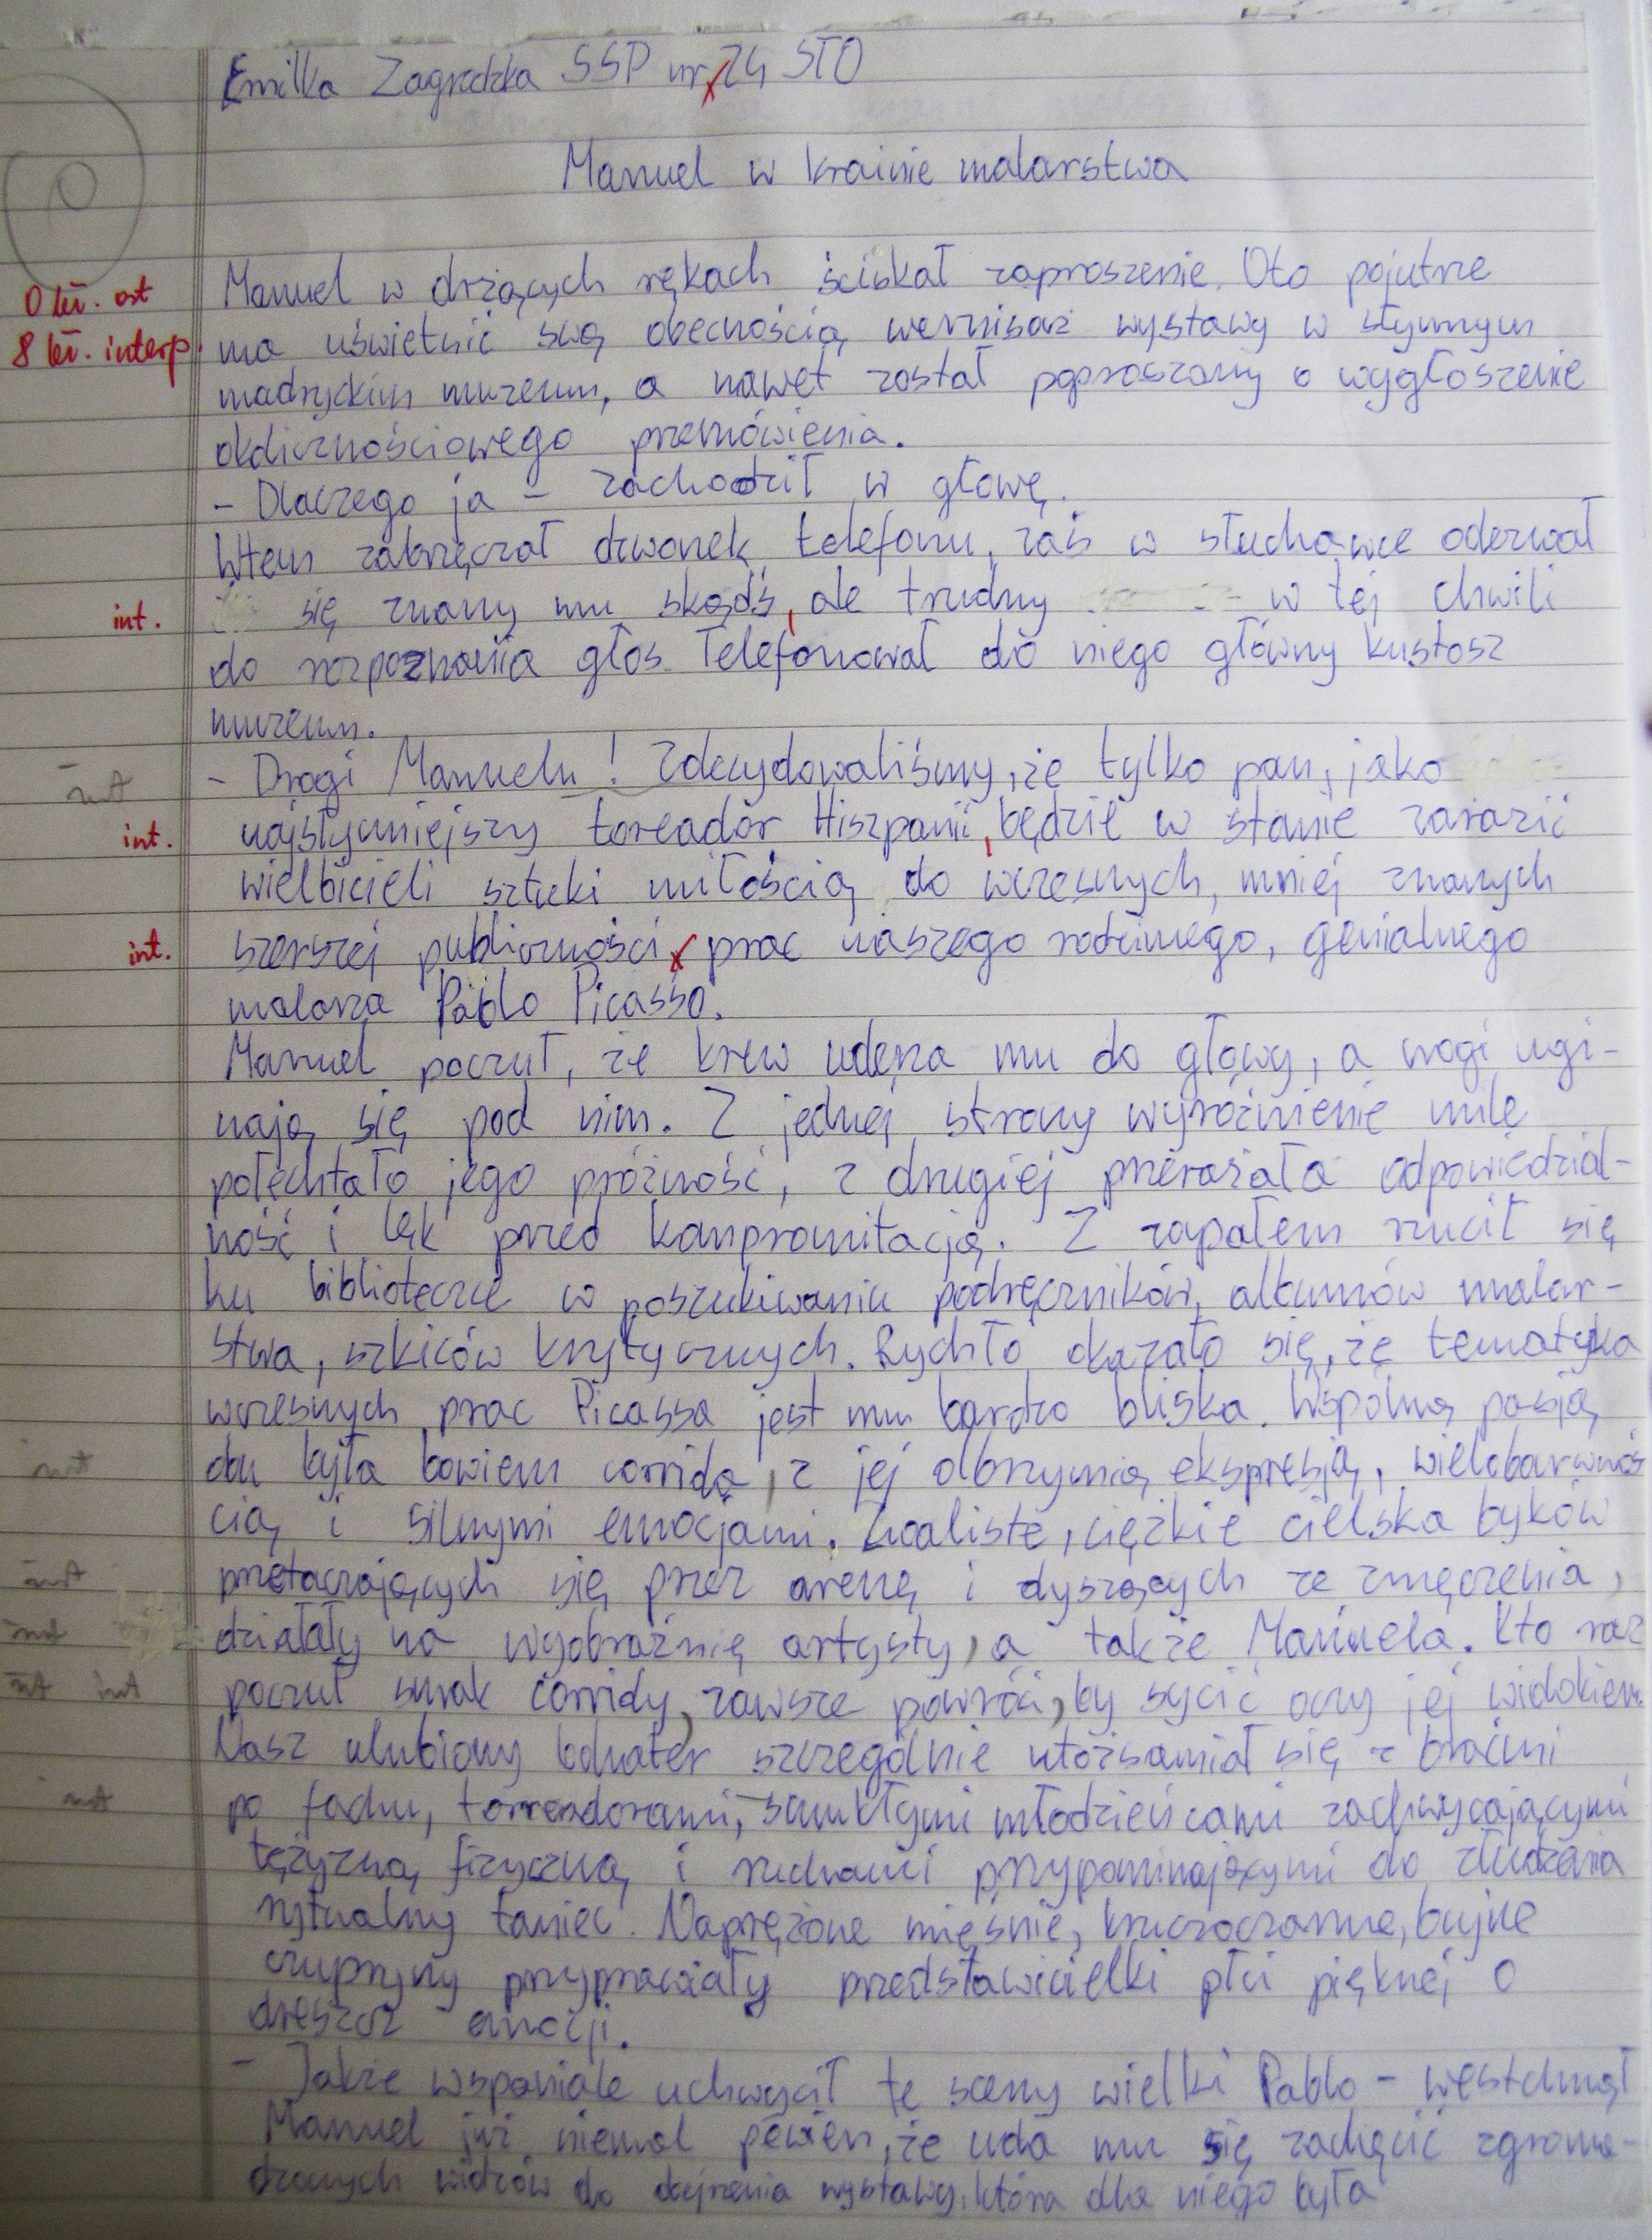 Emilka Zagrodzka SSP nr 24 STO
Manuel w krainie malarstwa
0 bł. ort
8 bł. interp.
Manuel w drżących rękach ściskał zaproszenie. Oto pojutrze
ma uświetnić swą obecnością wernisaż wystawy w słynnym
madryckim muzeum, a nawet został poproszony o wygłoszenie
okolicznościowego przemówienia.
- Dlaczego ja - zachodził w głowę.
Wtem zabrzęczał dzwonek telefonu, zaś w słuchawce oderwał
int. się znany mu skądś, ale trudny w tej chwili
do rozpoznania głos. Telefonował do niego główny kustosz
muzeum.
int - Drogi Manuelu! Zdecydowaliśmy, że tylko pan, jako
int. najsłynniejszy toreador Hiszpanii, będzie w stanie zarazić
wielbicieli sztuki miłością do wczesnych, mniej znanych
int. szerszej publiczności prac naszego rodzimego, genialnego
malarza Pablo Picasso.
Manuel poczuł, że krew uderza mu do głowy, a nogi ugi-
nają się pod nim. Z jednej strony wyróżnienie mile
połechtało jego próżność, z drugiej przerażała odpowiedzial-
ność i lęk przed kompromitacją. Z zapałem rzucił się
ku biblioteczce w poszukiwaniu podręczników, albumów malar-
stwa, szkiców krytycznych. Rychło okazało się, że tematyka
wczesnych prac Picassa jest mu bardzo bliska. Wspólną pasją
int obu była bowiem corrida, z jej olbrzymią ekspresją, wielobarwnoś
cią i silnymi emocjami. Zwaliste, ciężkie cielska byków
int przetaczających się przez arenę i dyszących ze zmęczenia,
int działały na wyobraźnię artysty, a także Manuela. Kto raz
int int poczuł smak corridy, zawsze powróci, by sycić oczy jej widokiem.
Nasz ulubiony bohater szczególnie utożsamiał się z braćmi
int po fachu, torreadorami, smukłymi młodzieńcami zachwycającymi
tężyzną fizyczną i ruchami przypominającymi do złudzenia
rytualny taniec. Naprężone mięśnie, kruczoczarne, bujne
czupryny przyprawiały przedstawicielki płci pięknej o
dreszcz emocji.
- Jakże wspaniale uchwycił te sceny wielki Pablo - westchnął
Manuel już niemal pewien, że uda mu się zachęcić zgroma-
dzonych widzów do obejrzenia wystawy, która dla niego była